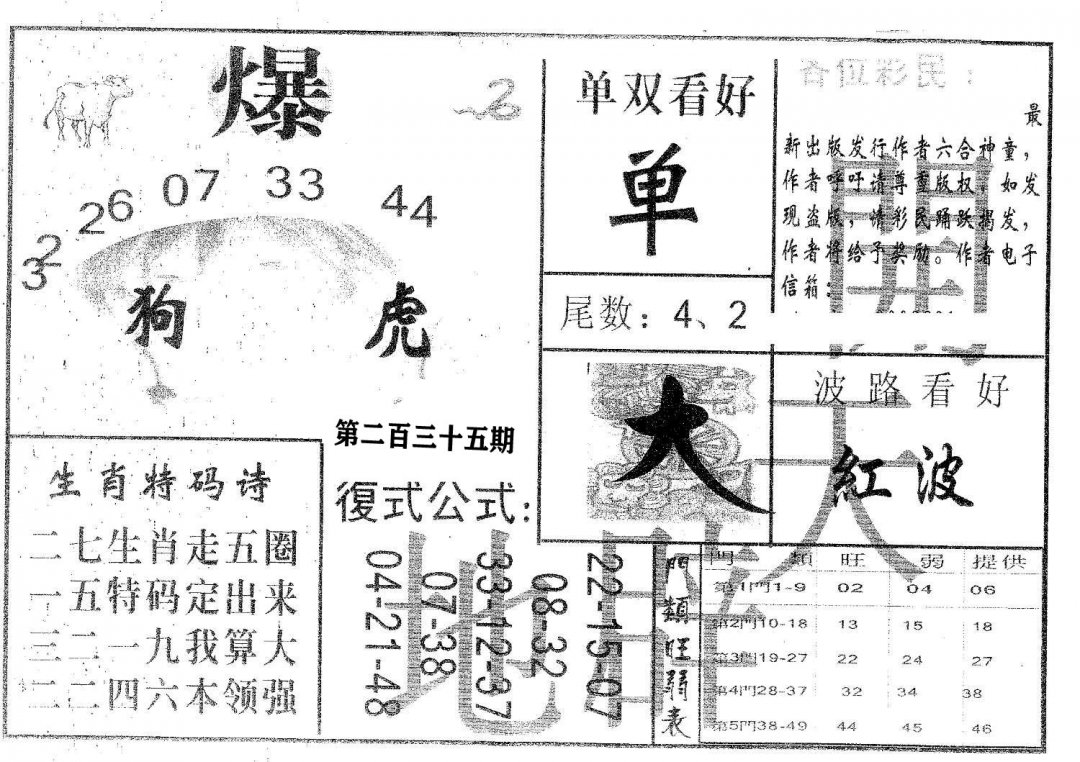 爆
2
32
26
07
33
44
狗
虎
第二百三十五期
单双看好
单
尾数：4、2
各位彩民：
最
新出版发行作者六合神童，
作者呼吁请尊重版权，如发
现盗版，情彩民踊跃揭发，
作者将给予奖励。作者电子
信箱：
大
波路看好
紅波
生肖特码诗
二七生肖走五圈
一五特码定出来
三二一九我算大
二二四六本领强
復式公式：
04-21-48
07-38
33-12-37
08-32
22-15-07
門類旺弱表
門類 旺 弱 提供
第1門1-9 02 04 06
第2門10-18 13 15 18
第3門19-27 22 24 27
第4門28-37 32 34 38
第5門38-49 44 45 46